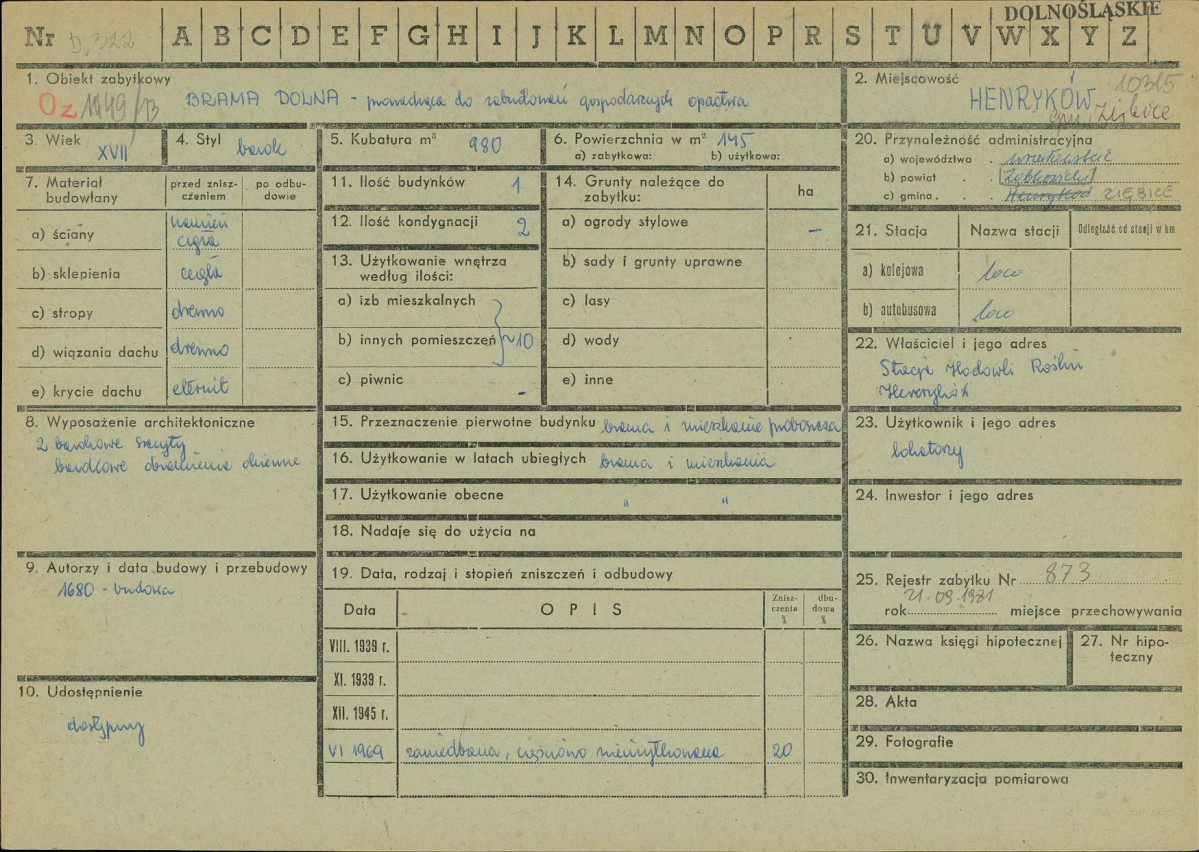 DOLNOŚLĄSKIE
Nr D,322 A B C D E F G H I J K L M N O P R S T U V W X Y Z
1. Obiekt zabytkowy
Oz 1849/B BRAMA DOLNA - prowadząca do zabudowań gospodarczych opactwa
2. Miejscowość 10315
HENRYKÓW
gm. Ziębice
3. Wiek
XVII
4. Styl
barok
5. Kubatura m³ 980
6. Powierzchnia w m² 145
a) zabytkowa: b) użytkowa:
20. Przynależność administracyjna
a) województwo . wrocławskie
b) powiat . . Ząbkowicki
c) gmina . . . Henryków ZIĘBICE
7. Materiał budowlany
przed znisz-
czeniem
po odbu-
dowie
a) ściany kamień
cegła
b) sklepienia cegła
c) stropy drewno
d) wiązania dachu drewno
e) krycie dachu eternit
11. Ilość budynków 1
12. Ilość kondygnacji 2
13. Użytkowanie wnętrza
według ilości:
a) izb mieszkalnych
b) innych pomieszczeń ~10
c) piwnic -
14. Grunty należące do
zabytku:
ha
a) ogrody stylowe -
b) sady i grunty uprawne
c) lasy
d) wody
e) inne
21. Stacja Nazwa stacji Odległość od stacji w km
a) kolejowa loco
b) autobusowa loco
22. Właściciel i jego adres
Stacja Hodowli Roślin
Henryków
8. Wyposażenie architektoniczne
2 barokowe szczyty
barokowe obramienia okienne
15. Przeznaczenie pierwotne budynku brama i mieszkanie proboszcza
16. Użytkowanie w latach ubiegłych brama i mieszkania
17. Użytkowanie obecne " "
18. Nadaje się do użycia na
23. Użytkownik i jego adres
lokatorzy
24. Inwestor i jego adres
9. Autorzy i data budowy i przebudowy
1680 - budowa
19. Data, rodzaj i stopień zniszczeń i odbudowy
Data OPIS Znisz-
czenie
%
dbu-
dowa
%
VIII. 1939 r.
XI. 1939 r.
XII. 1945 r.
VI 1969 zaniedbana, częściowo nieużytkowana 20
25. Rejestr zabytku Nr 873
21.09.1981
rok miejsce przechowywania
26. Nazwa księgi hipotecznej
27. Nr hipo-
teczny
10. Udostępnienie
dostępny
28. Akta
29. Fotografie
30. Inwentaryzacja pomiarowa